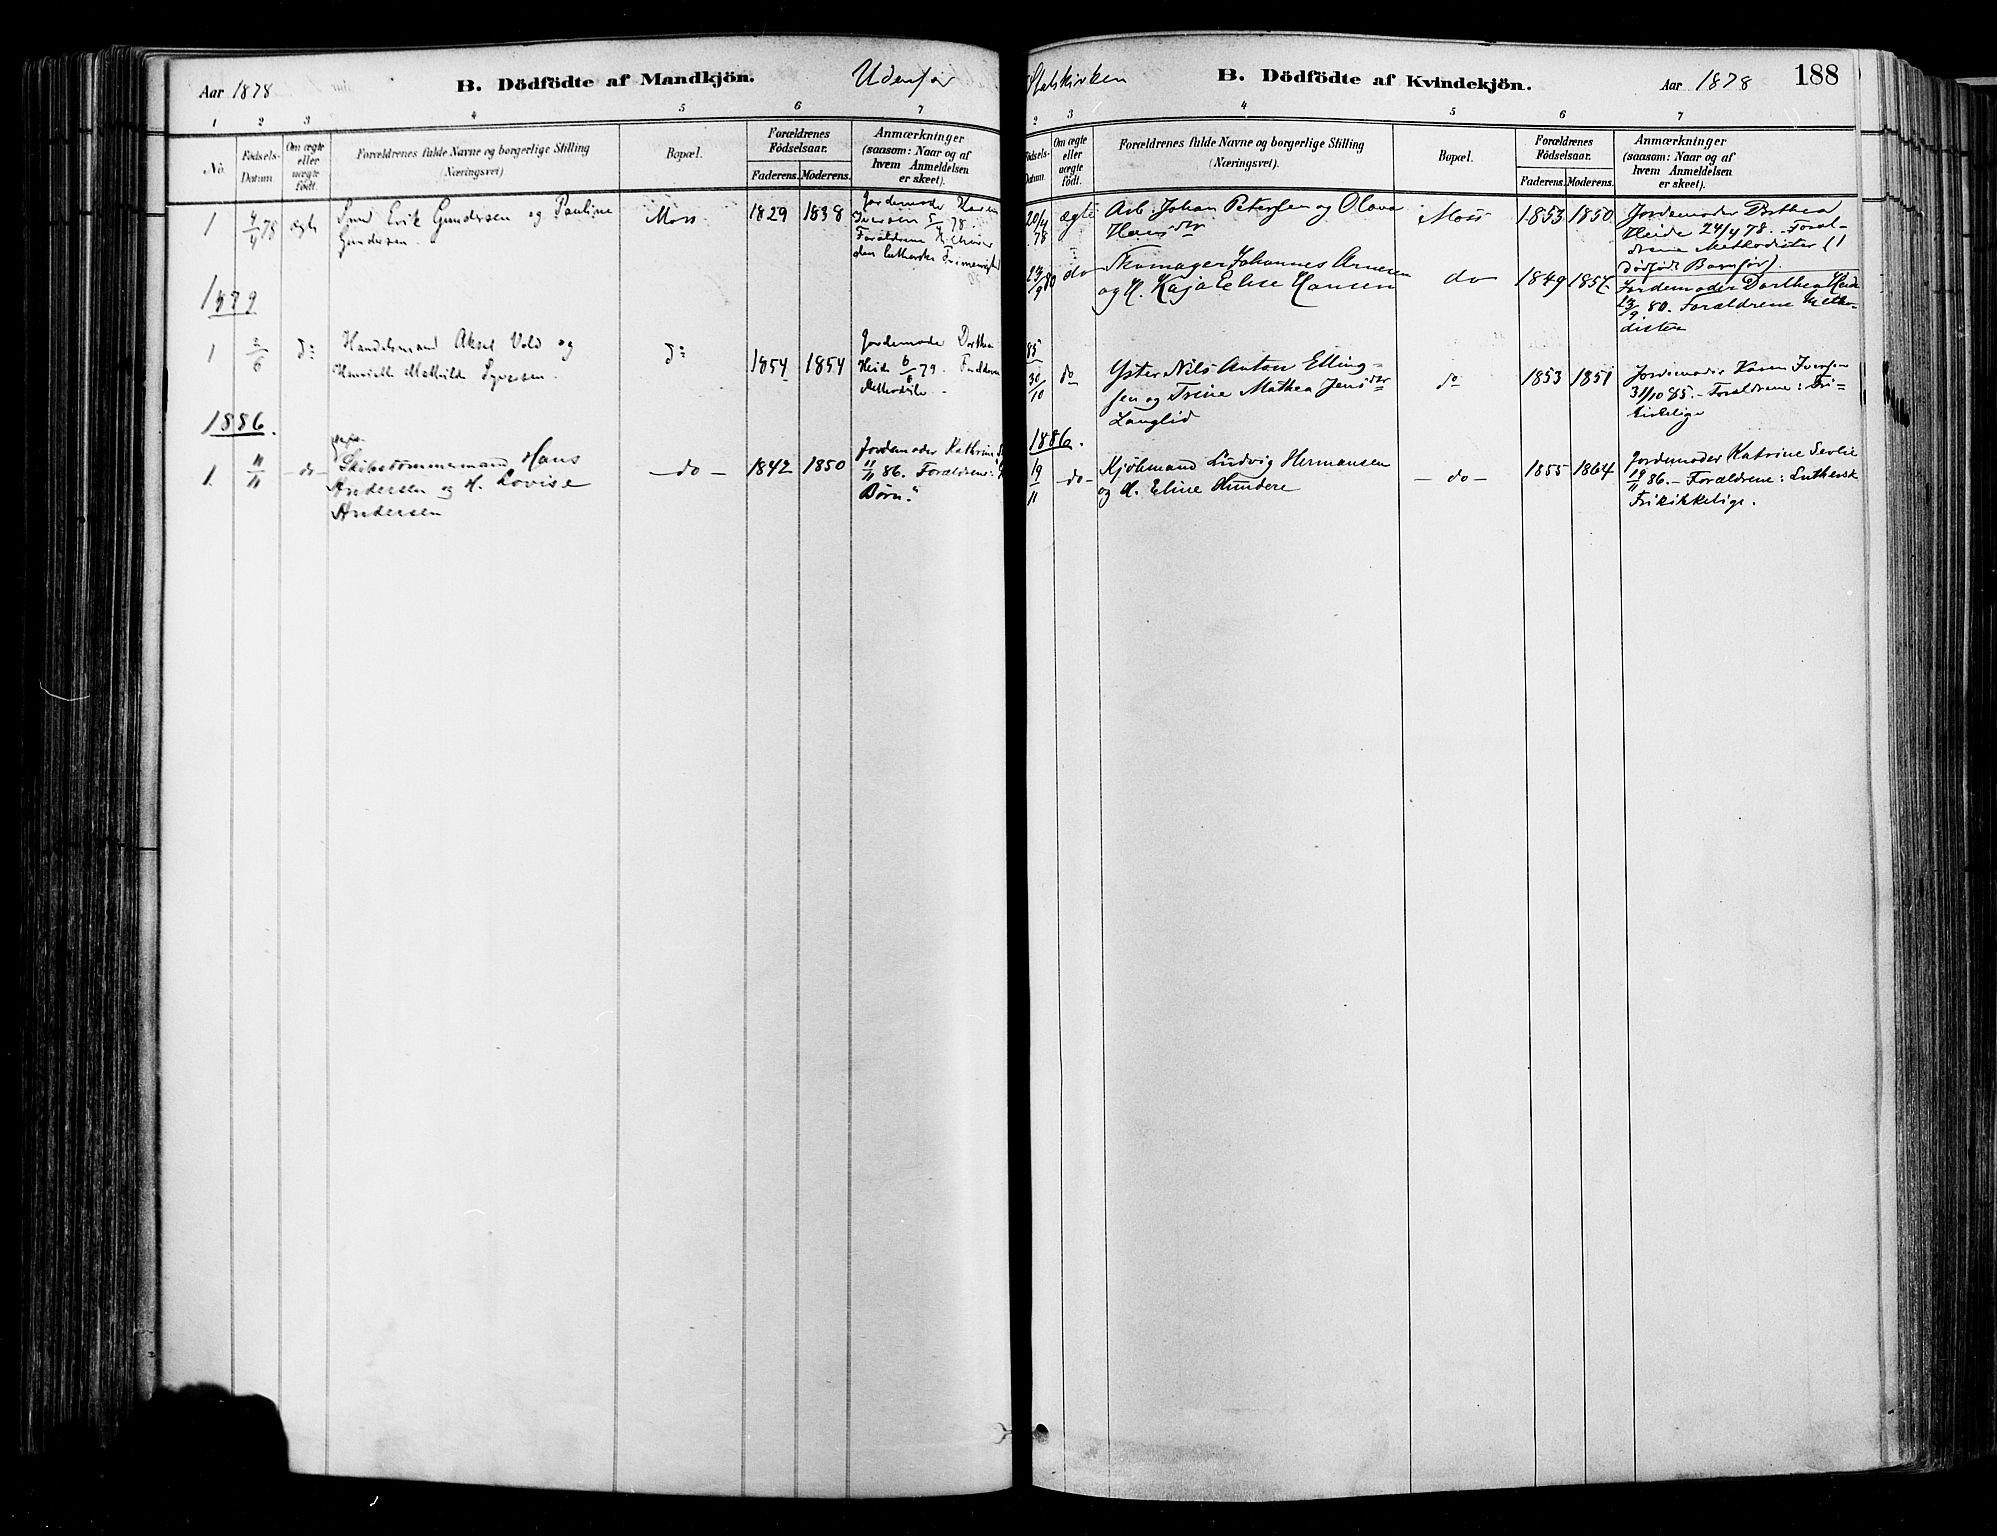 Aar 1878
B. Dödfödte af Mandkjön.
Udenfor
1 2 3 4 5 6 7
No.
Fødsels-
Datum.
Om ægte
eller
uægte
født.
Forældrenes fulde Navne og borgerlige Stilling
(Næringsvei)
Bopæl.
Forældrenes
Födselsaar.
Faderens. Moderens.
Anmærkninger
(saasom: Naar og af
hvem Anmeldelsen
er skeet).
1 4/4 78 ægte Smed Erik Gundersen og Pauline Moss 1829 1838 Jordemoder Karen
Gundersen. Iversen 5/4 78.
Forældrene
den lutherske Frimenighed
1879
1 3/6 do Handelsmand Aksel Vold og do 1854 1854 Jordemoder Dorthea
Henriette Mathilde Syversen. Heide 6/6 79. Forældrene
Methodister.
1886.
1. 11/11 -do- Skibstømmermand Hans -do- 1842 1850 Jordemoder Kathrine
Andersen og H. Lovise 11/11 86. Forældrene:
Andersen Børn."
Statskirken
B. Dödfödte af Kvindekjön.
Aar 1878
188
2 3 4 5 6 7
Fødsels-
Datum.
Om ægte
eller
uægte
født.
Forældrenes fulde Navne og borgerlige Stilling
(Næringsvei).
Bopæl.
Forældrenes
Födselsaar.
Faderens. Moderens.
Anmærkninger
(saasom: Naar og af
hvem Anmeldelsen
er skeet).
20/4 78 ægte Arb. Johan Petersen og Olava Moss 1853 1850 Jordemoder Dorthea
Hansdtr Heide 24/4 78. Foræl-
drene Methodister (1
dødfødt Barn før).
23/9 80 do Skomager Johannes Arnesen do 1849 1857 Jordemoder Dorthea Heide
og H. Kaja Elise Hansen 23/9 80. Forældrene Metho-
dister
85
30/10 do Yster Nils Anton Elling- do 1853 1851 Jordemoder Karen Iversen
sen og Trine Mathea Jensdtr 31/10 85. - Forældrene: Fri-
Langlid kirkelige
1886.
19/11 -do- Kjøbmand Ludvig Hermansen -do- 1855 1864 Jordemoder Katrine Sevlie
og H. Eline Hundere 19/11 86. - Forældrene: Luthersk
Frikirkelige.